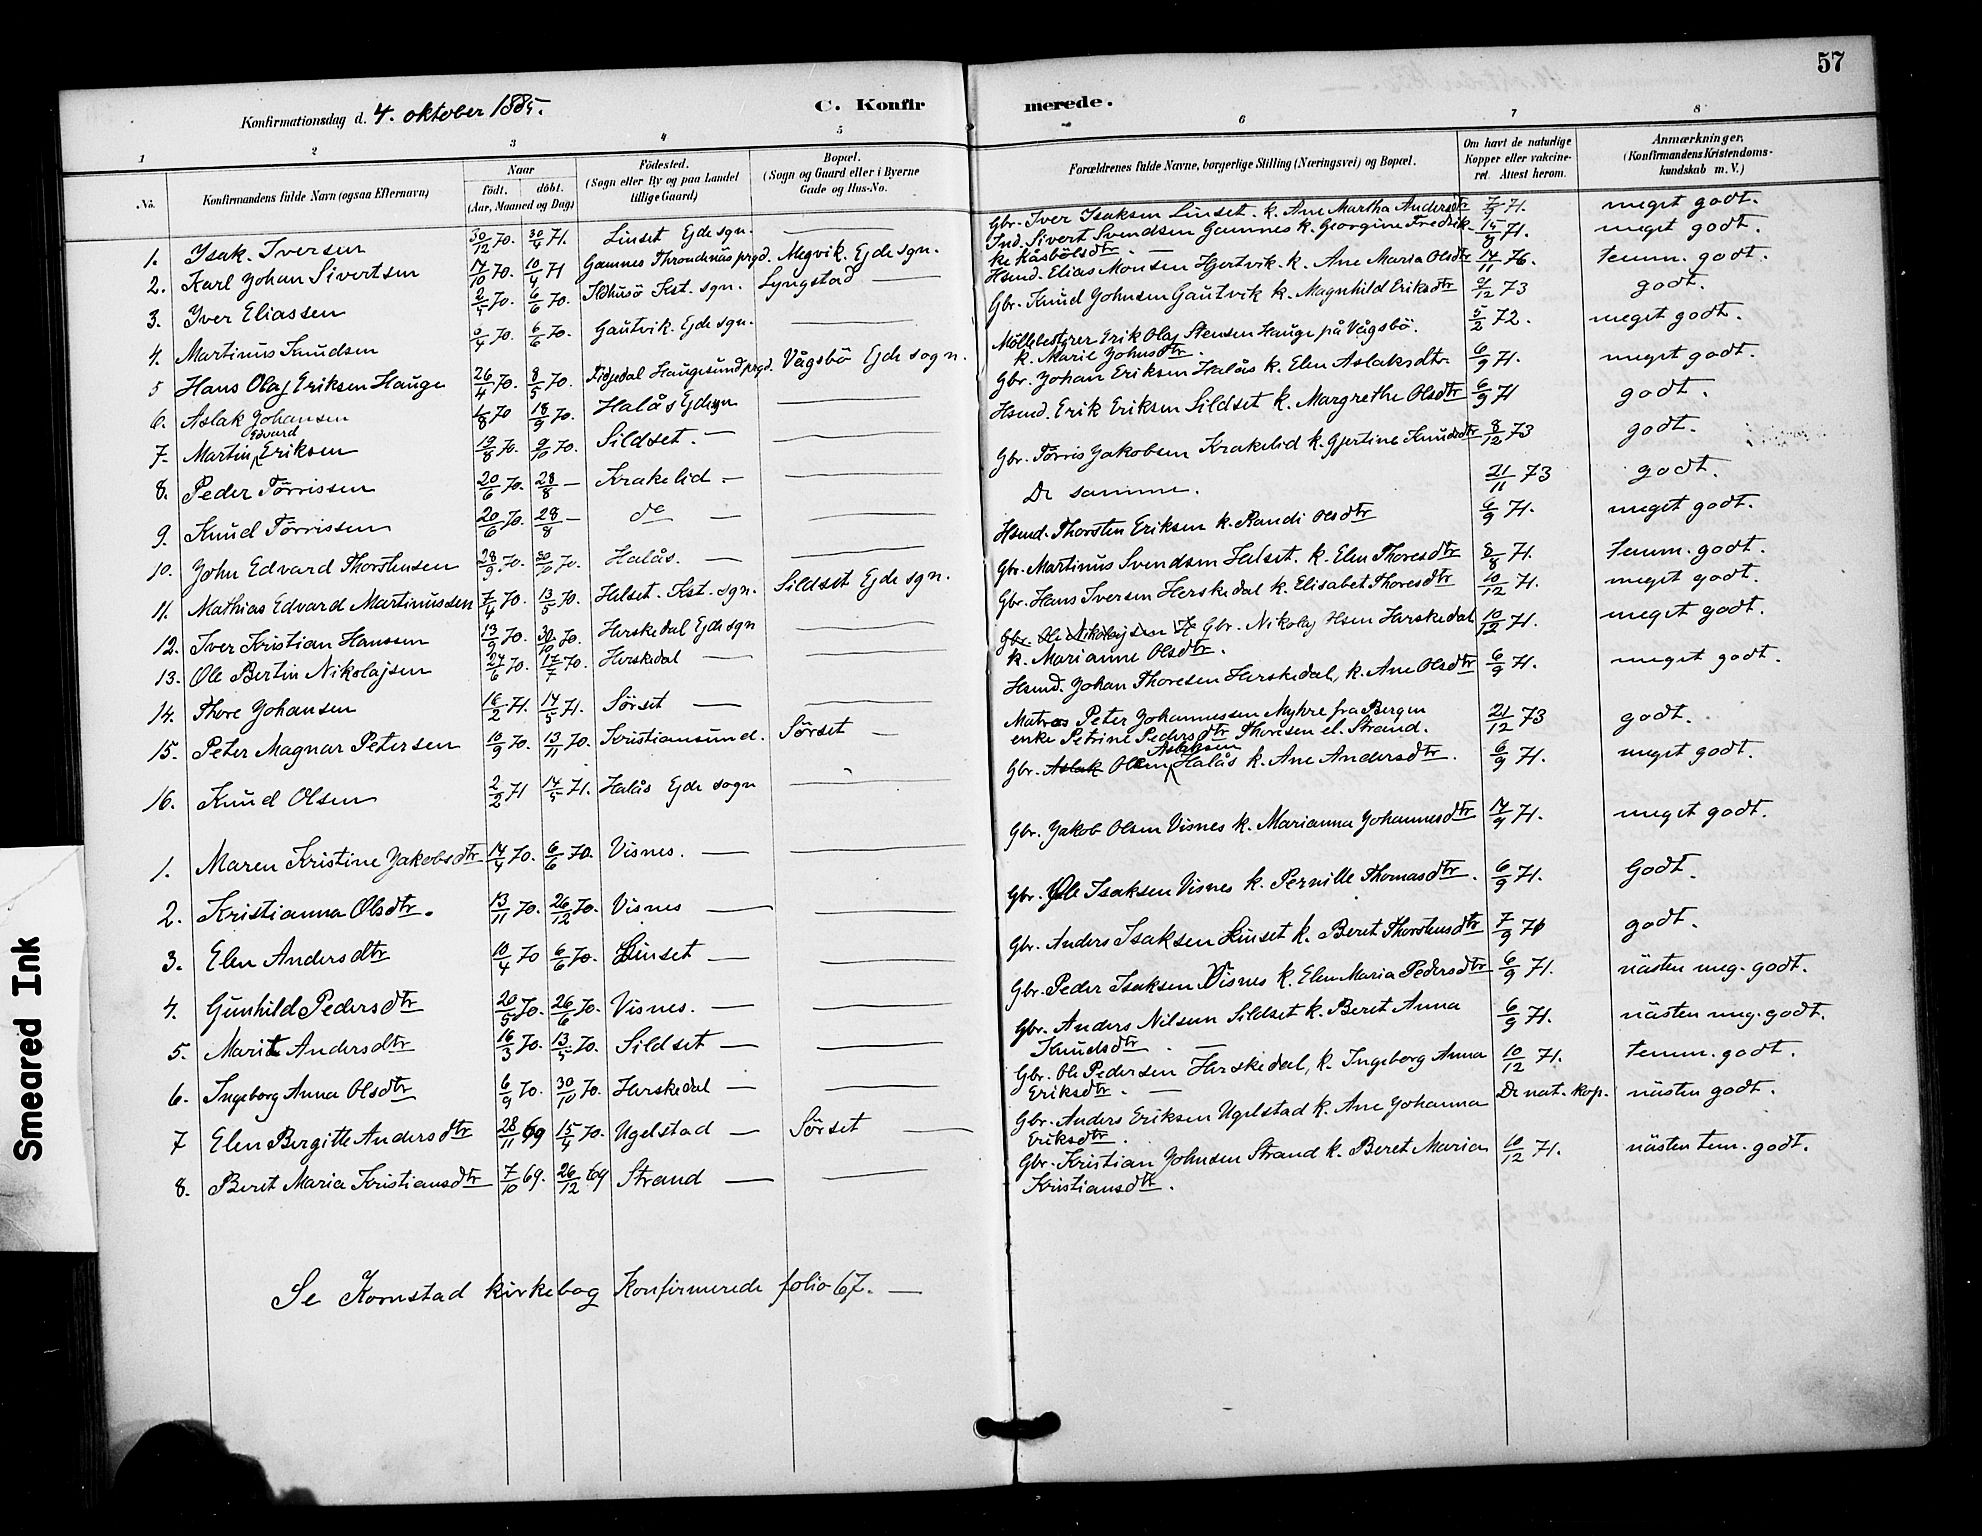 57
Konfirmationsdag d. 4. oktober 1885. C. Konfirmerede.
1 2 3 4 5 6 7 8
No. Konfirmandens fulde Navn (ogsaa Efternavn) Naar født. døbt. (Aar, Maaned og Dag) Fødested. (Sogn eller By og paa Landet tillige Gaard) Bopæl. (Sogn og Gaard eller i Byerne Gade og Hus-No. Forældrenes fulde Navne, borgerlige Stilling (Næringsvei) og Bopæl. Om havt de naturlige Kopper eller vakcineret. Attest herom. Anmærkninger, (Konfirmandens Kristendomskundskab m. V.)
1. Isak Iversen 30/12 70. 30/4 71. Linset Ejde sgn. — Gbr. Iver Isaksen Linset. k. Ane Martha Andersdtr 7/9 71. meget godt.
2. Karl Johan Sivertsen 17/10 70. 10/4 71 Gamnes Throndenäs prgd. Megvik. Ejde sgn. Ind. Sivert Svendsen Gamnes k. Georgine Fredrikke Kåsbölsdtr — 15/9 71. meget godt.
3. Iver Eliassen 2/5 70. 6/6 70. Kst. sgn. Lyngstad — Hsmd. Elias Monsen Hjertvik. k. Ane Maria Olsdtr 14/11 76. temm. godt.
4. Martinus Knudsen 9/4 70. 6/6 70. Gautvik. Ejde sgn. — Gbr. Knud Johnsen Gautvik k. Magnhild Eriksdtr 9/12 73 godt.
5 Hans Olaj Eriksen Hauge 26/4 70. 8/5 70. Haugesund prgd. Vågsbö Ejde sogn. Möllebestyrer Erik Olaj Stensen Hauge på Vågsbö. k. Marie Johnsdtr. 5/2 72. meget godt.
6. Aslak Johansen 1/8 70 18/9 70. Halås Ejde sgn — Gbr. Johan Eriksen Halås k. Elen Aslaksdtr 6/9 71. meget godt.
7. Martin Edvard Eriksen 19/8 70. 9/10 70. Sildset. — — Hsmd. Erik Eriksen Sildset k. Margrethe Olsdtr 6/9 71 godt.
8. Peder Törrissen 20/6 70. 28/8 — Krakelid — — Gbr. Törris Jakobsen Krakelid k. Gjertine Knudsdtr 8/12 73 godt.
9. Knud Törrissen 20/6 70. 28/8 — do — — De samme. 21/11 73 godt.
10. John Edvard Thorstensen 28/9 70. 30/10 70. Halås. — — Hsmd. Thorsten Eriksen k. Randi Olsdtr 6/9 71. meget godt.
11. Mathias Edvard Martinussen 7/4 70. 13/5 70. Helset. Kst. sgn. Sildset Ejde sgn. Gbr. Martinus Svendsen Helset. k. Elen Thoresdtr 8/8 71. temm. godt.
12. Iver Kristian Hanssen 13/9 70. 30/10 70. Herskedal Ejde sgn — Gbr. Hans Iversen Herskedal k. Elisabet Thoresdtr 10/12 71. meget godt.
13. Ole Bertin Nikolajsen 27/6 70. 17/7 70. Herskedal — — Gbr. Ole Nikolajsen Gbr. Nikolaj Herskedal k. Marianne Olsdtr. 10/12 71. meget godt.
14. Thore Johansen 16/2 71. 14/5 71. Sörset — — Hsmd. Johan Thoresen Herskedal, k. Ane Olsdtr 6/9 71. meget godt.
15. Peter Magnar Petersen 10/9 70. 13/11 70. Kristiansund. Sörset — Matros Peter Johannessen Myhre fra Bergen enke Petrine Pedersdtr Thoresen el. Strand. 21/12 73 godt.
16. Knud Olsen 2/2 71 14/5 71. Halås Ejde sogn — Gbr. Aslak Olsen Aslaksen Halås k. Ane Andersdtr. 6/9 71. meget godt.
1. Maren Kristine Jakobsdtr 14/4 70. 6/6 70. Visnes. — — Gbr. Jakob Olsen Visnes k. Marianna Johannesdtr 14/9 71. meget godt.
2. Kristianna Olsdtr. 13/11 70. 26/12 70. Visnes — — Gbr. Ole Isaksen Visnes k. Pernille Thomasdtr. 6/9 71. Godt.
3. Elen Andersdtr 10/4 70 6/6 70. Linset — — Gbr. Anders Isaksen Linset k. Beret Thorstensdtr 7/9 71 godt.
4. Gunhild Pedersdtr 20/5 70. 26/6 70. Visnes. — — Gbr. Peder Isaksen Visnes k. Elen Maria Pedersdtr 6/9 71. nästen meg. godt.
5. Marit Andersdtr 16/3 70. 13/5 70. Sildset — — Gbr. Anders Nilsen Sildset k. Beret Anna Knudsdtr. — 6/9 71. nästen meg. godt.
6. Ingeborg Anna Olsdtr 6/9 70. 30/10 70. Herskedal — — Gbr. Ole Pedersen Herskedal, k. Ingeborg Anna Eriksdtr. — 10/12 71. temm. godt.
7 Elen Bergitte Andersdtr 28/11 69 15/4 70. Ugelstad — Sörset — Gbr. Anders Eriksen Ugelstad k. Ane Johanna Eriksdtr. De nat. kop. nästen godt.
8. Beret Maria Kristiansdtr 7/10 69. 26/12 69 Strand — — Gbr. Kristian Johnsen Strand k. Beret Maria Kristiansdtr. 10/12 71. nästen tem. godt.
Se Kornstad kirkebog Konfirmerede folio 67. —
Smeared Ink